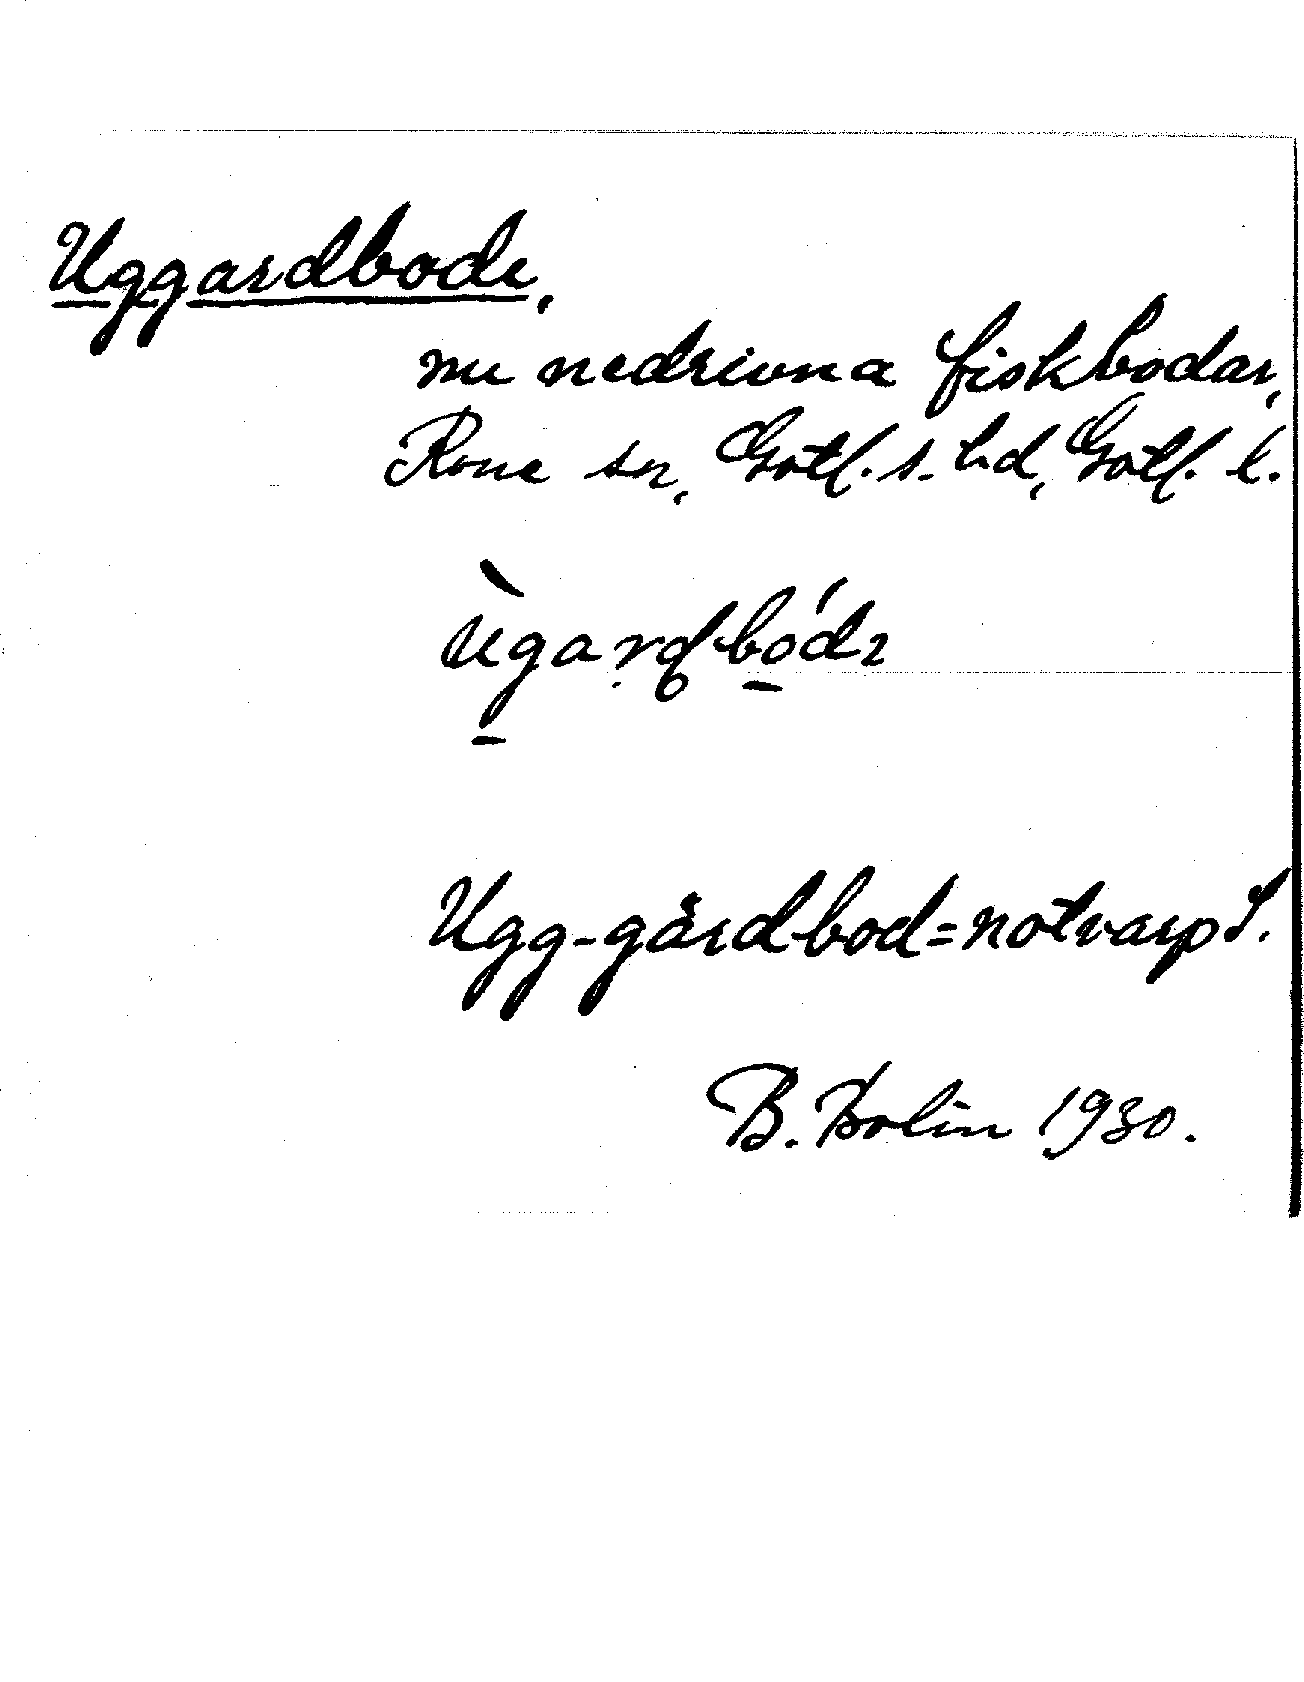 Uggardbode,
nu nedrivna fiskbodar,
Rone sn, Gotl. s. hd, Gotl. l.
Ugg-gärdbod=notvarp S.
B. Bolin 1930.